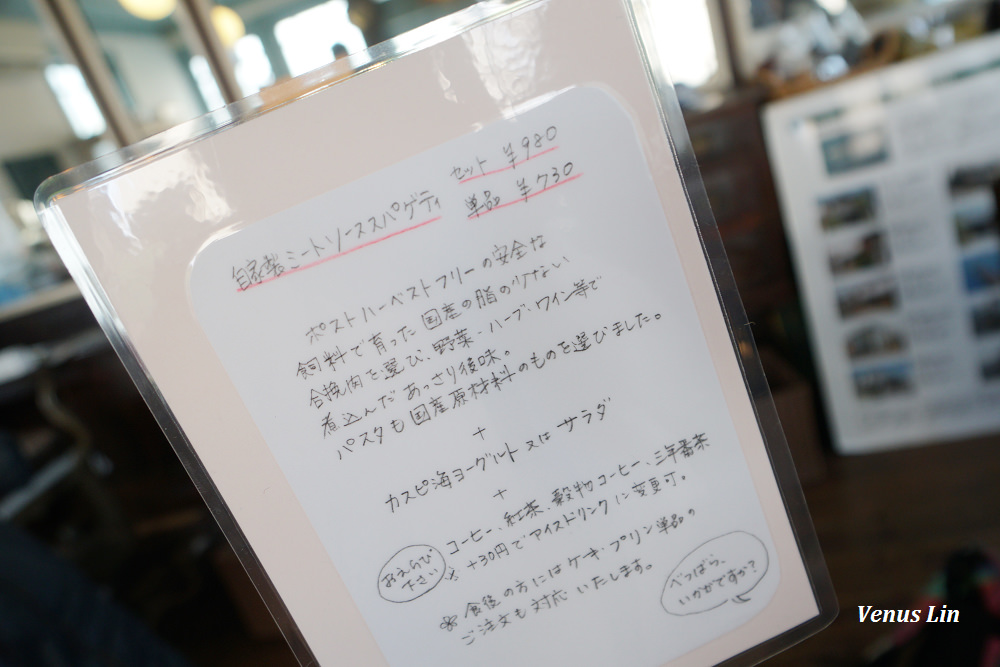 自家製ミートソーススパゲティ セット ¥980
単品 ¥730
ポストハーベストフリーの安全な
飼料で育った国産の脂の少ない
合挽肉を選び、野菜・ハーブ・ワイン等で
煮込んだあっさり後味。
パスタも国産原材料のものを選びました。
+
カスピ海ヨーグルト又はサラダ
+
おえらび
下さい
コーヒー、紅茶、穀物コーヒー、三年番茶
※ +30円でアイスドリンクに変更可。
※ 食後の方にはケーキ・プリン単品の
ご注文も対応いたします。
べつばら、
いかがですか?
Venus Lin